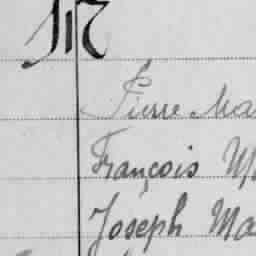 M
Pierre Ma
François M
Joseph Ma